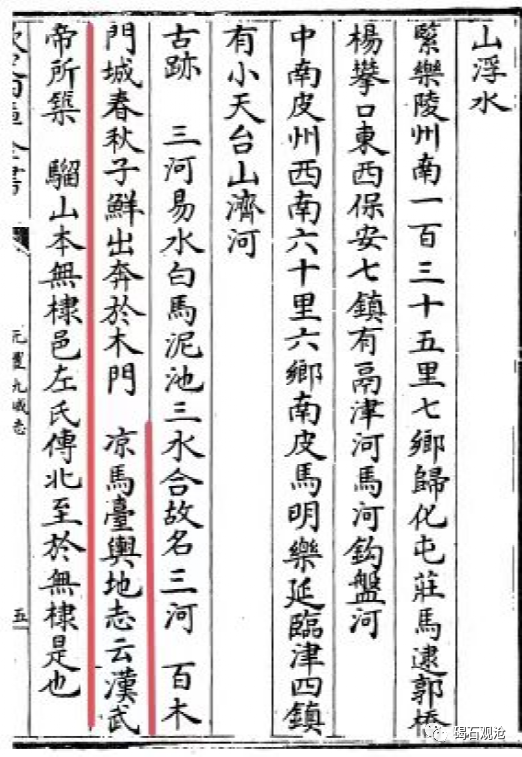 山浮水
緊樂陵州南一百三十五里七鄉歸化屯莊馬逮郭橋
楊攀口東西保安七鎮有鬲津河馬河鉤盤河
中南皮州西南六十里六鄉南皮馬明樂延臨津四鎮
有小天台山濟河
古跡 三河易水白馬泥池三水合故名三河 百木
門城春秋子鮮出奔於木門 凉馬臺輿地志云漢武
帝所築 騮山本無棣邑左氏傳北至於無棣是也
元豐九域志
五
碣石观沧